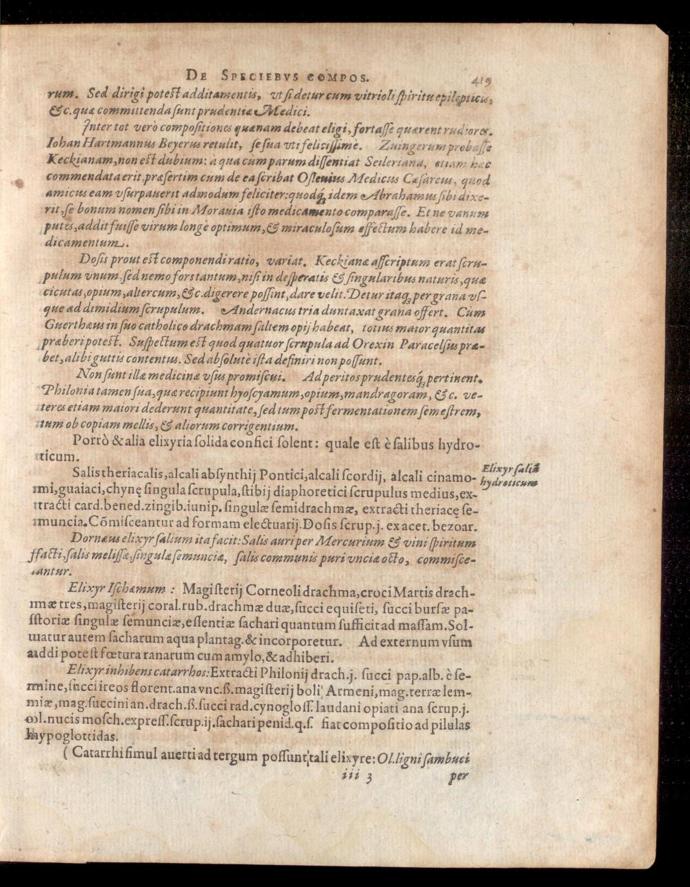 DE SPECIEBVS COMPOS. 419
rum. Sed dirigi potest additamentis, vt si detur cum vitrioli spiritu epilepticis,
&c. quæ committenda sunt prudentiæ Medici.
Inter tot verò compositiones quænam debeat eligi, fortasse quærent rudiores.
Iohan Hartmannus Beyerus retulit, se sua vti felicissime. Zuingerum probasse
Keckianam, non est dubium: a qua cum parum dissentiat Seileriana, etiam hæc
commendata erit, præsertim cum de ea scribat Ossenius Medicus Cæsareus, quod
amicus eam vsurpauerit admodum feliciter: quodq́; idem Abrahamus sibi dixe-
rit, se bonum nomen sibi in Morauia isto medicamento comparasse. Et ne vanum
putes, addit fuisse virum longè optimum, & miraculosum effectum habere id me-
dicamentum.
Dosis prout est componendi ratio, variat. Keckianæ asscriptum erat scru-
pulum vnum, sed nemo fors tantum, nisi in desperatis & singularibus naturis, quæ
cicutas, opium, altercum, &c. digerere possint, dare velit. Detur itaq; per grana vs-
que ad dimidium scrupulum. Andernacus tria duntaxat grana offert. Cum
Guerthæus in suo catholico drachmam saltem opij habeat, totius maior quantitas
præberi potest. Suspectum est quod quatuor scrupula ad Orexin Paracelsus præ-
bet, alibi guttis contentus. Sed absolutè ista definiri non possunt.
Non sunt illæ medicinæ vsus promiscui. Ad peritos prudentesq́; pertinent.
Philonia tamen sua, quæ recipiunt hyoscyamum, opium, mandragoram, &c. ve-
teres etiam maiori dederunt quantitate, sed tum post fermentationem semestrem,
tum ob copiam mellis, & aliorum corrigentium.
Portò & alia elixyria solida confici solent: quale est è salibus hydro-
ticum.
Elixyr saliū
hydroticum
Salis theriacalis, alcali absynthij Pontici, alcali scordij, alcali cinamo-
mi, guaiaci, chynę singula scrupula, stibij diaphoretici scrupulus medius, ex-
tracti card. bened. zingib. iunip. singulæ semidrachmæ, extracti theriacę se-
muncia. Cōmisceantur ad formam electuarij. Dosis scrup. j. ex acet. bezoar.
Dornæus elixyr salium ita facit: Salis auri per Mercurium & vini spiritum
facti, salis melissæ, singulæ semunciæ, salis communis puri vncia octo, commisce-
antur.
Elixyr Ischæmum: Magisterij Corneoli drachma, croci Martis drach-
mæ tres, magisterij coral. rub. drachmæ duæ, succi equiseti, succi bursæ pa-
storiæ singulæ semunciæ, essentiæ sachari quantum sufficit ad massam. Sol-
uatur autem sacharum aqua plantag. & incorporetur. Ad externum vsum
addi potest fœtura ranarum cum amylo, & adhiberi.
Elixyr inhibens catarrhos: Extracti Philonij drach. j. succi pap. alb. è se-
mine, succi ireos florent. ana vnc. ß. magisterij boli Armeni, mag. terræ lem-
miæ, mag. succini an. drach. ß. succi rad. cynogloss. laudani opiati ana scrup. j.
ol. nucis mosch. express. scrup. ij. sachari penid. q. s. fiat compositio ad pilulas
hypoglottidas.
(Catarrhi simul auerti ad tergum possunt, tali elixyre: Ol. ligni sambuci
iii 3 per